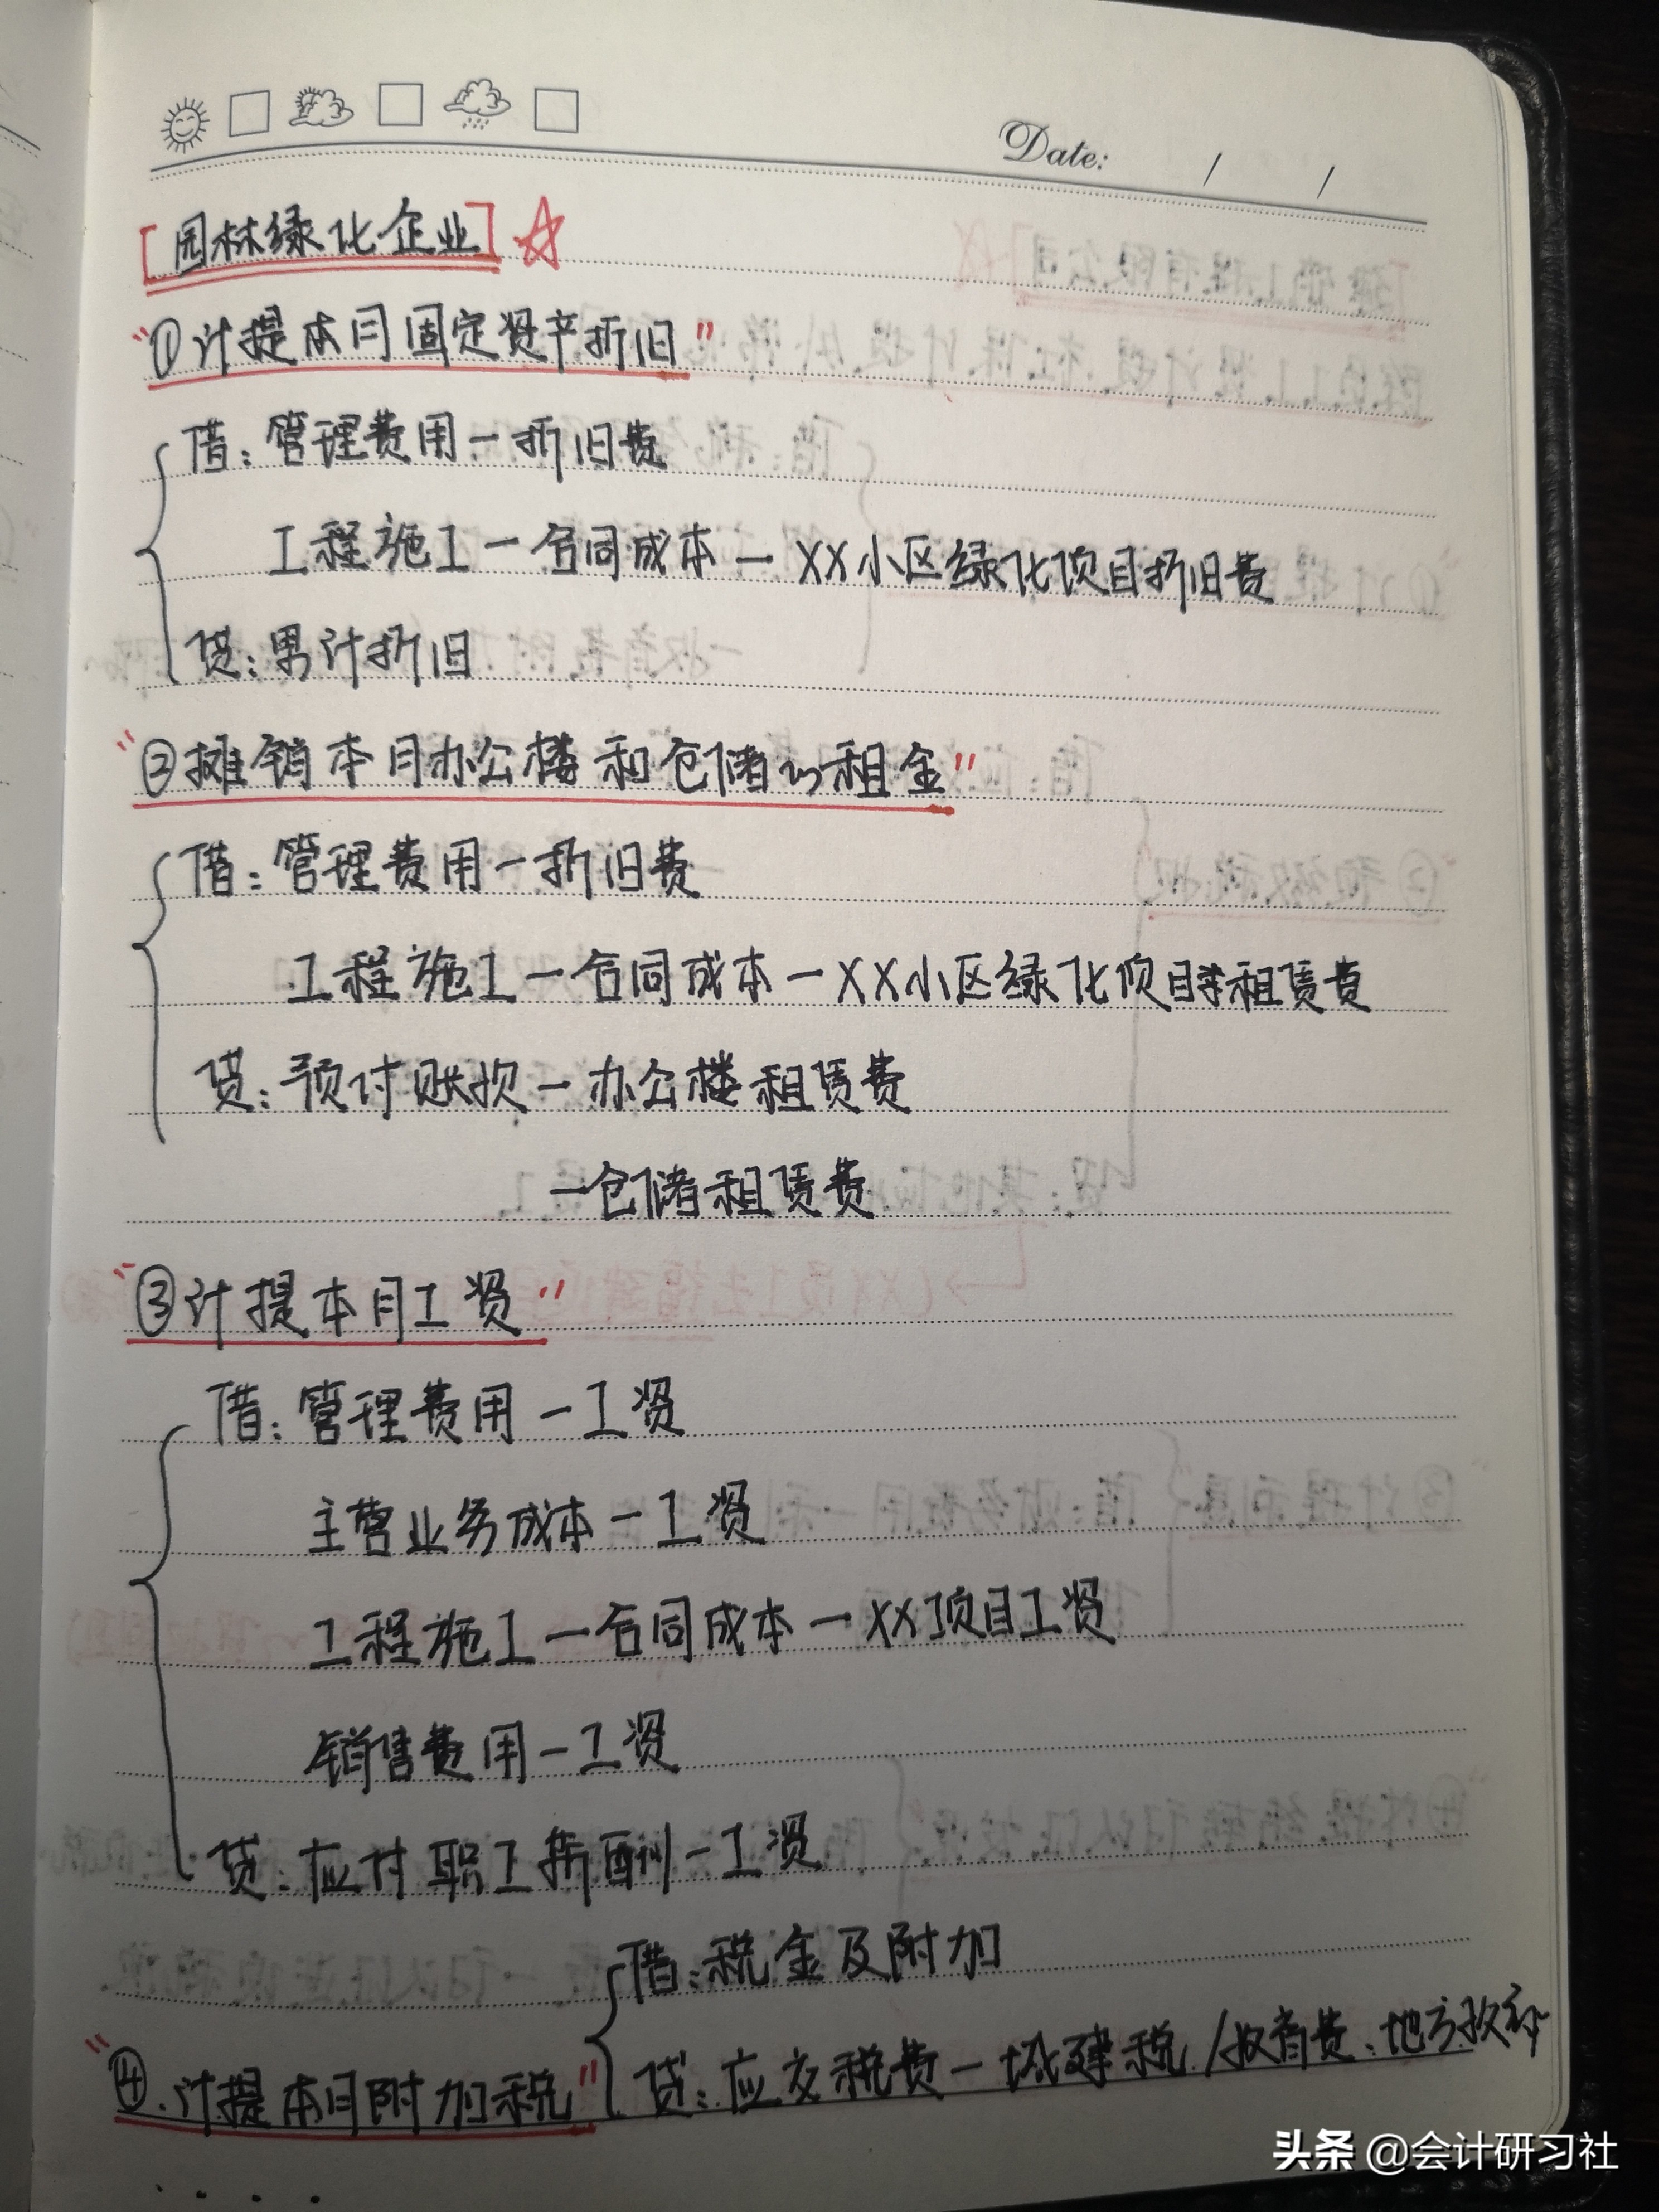 Date: / /
[园林绿化企业]☆
"①计提本月固定资产折旧"
借:管理费用一折旧费
工程施工一合同成本一XX小区绿化项目折旧费
贷:累计折旧
"②摊销本月办公楼和仓储的租金"
借:管理费用一折旧费
工程施工一合同成本一XX小区绿化项目租赁费
贷:预付账款一办公楼租赁费
一仓储租赁费
"③计提本月工资"
借:管理费用一工资
主营业务成本一工资
工程施工一合同成本一XX项目工资
销售费用一工资
贷:应付职工薪酬一工资
借:税金及附加
"④.计提本月附加税"
贷:应交税费一城建税/教育费、地方教
头条 @会计研习社